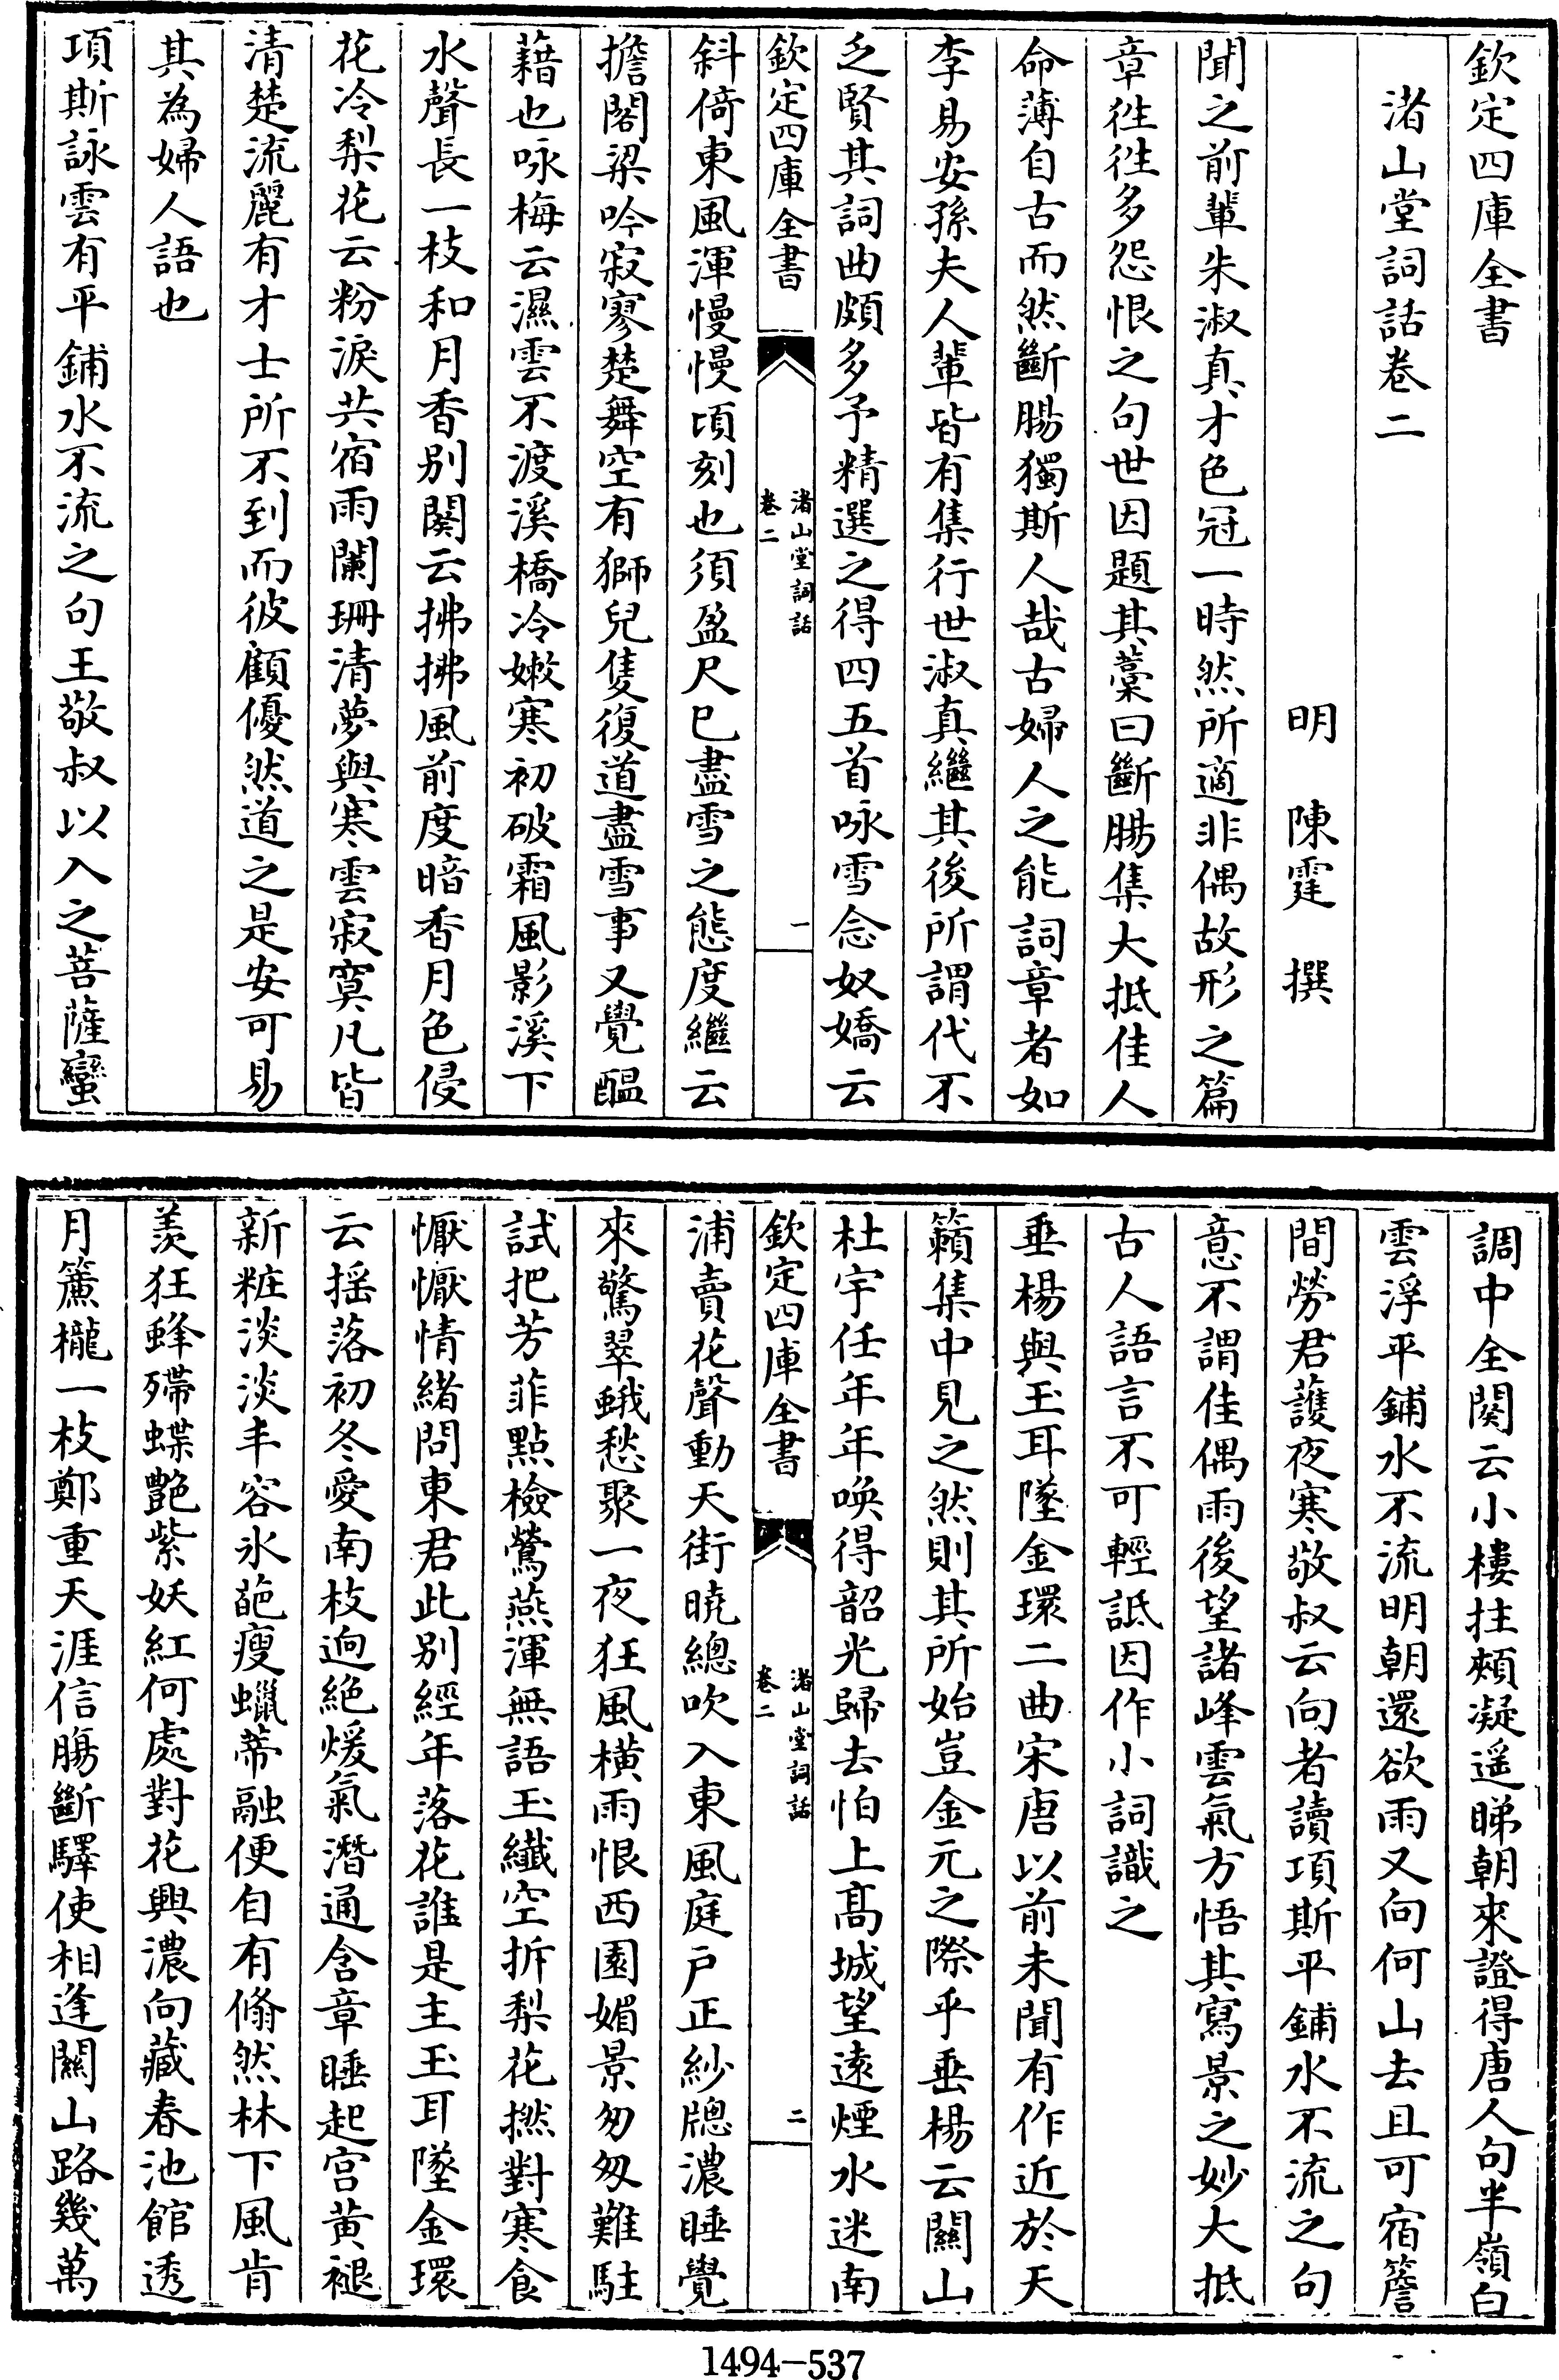 欽定四庫全書
渚山堂詞話卷二
明 陳霆 撰
聞之前輩朱淑真才色冠一時然所適非偶故形之篇
章徃徃多怨恨之句世因題其藁曰斷腸集大抵佳人
命薄自古而然斷腸獨斯人哉古婦人之能詞章者如
李易安孫夫人輩皆有集行世淑真繼其後所謂代不
乏賢其詞曲頗多予精選之得四五首咏雪念奴嬌云
欽定四庫全書
渚山堂詞話
卷二
一
斜倚東風渾慢慢頃刻也須盈尺已盡雪之態度繼云
擔閣梁吟寂寥楚舞空有獅兒隻復道盡雪事又覺醞
藉也咏梅云濕雲不渡溪橋冷嫩寒初破霜風影溪下
水聲長一枝和月香别闋云拂拂風前度暗香月色侵
花冷梨花云粉淚共宿雨闌珊清夢與寒雲寂寞凡皆
清楚流麗有才士所不到而彼顧優然道之是安可易
其為婦人語也
項斯詠雲有平鋪水不流之句王敬叔以入之菩薩蠻
調中全闋云小樓拄頰凝遥睇朝來證得唐人句半嶺白
雲浮平鋪水不流明朝還欲雨又向何山去且可宿簷
間勞君護夜寒敬叔云向者讀項斯平鋪水不流之句
意不謂佳偶雨後望諸峰雲氣方悟其寫景之妙大抵
古人語言不可輕詆因作小詞識之
垂楊與玉耳墜金環二曲宋唐以前未聞有作近於天
籟集中見之然則其所始豈金元之際乎垂楊云關山
杜宇任年年喚得韶光歸去怕上髙城望遠煙水迷南
欽定四庫全書
渚山堂詞話
卷二
二
浦賣花聲動天街曉總吹入東風庭戶正紗牕濃睡覺
來驚翠蛾愁聚一夜狂風橫雨恨西園媚景匆匆難駐
試把芳菲點檢鶯燕渾無語玉纖空拆梨花撚對寒食
懨懨情緒問東君此别經年落花誰是主玉耳墜金環
云揺落初冬愛南枝迥絶煖氣潛通含章睡起宫黄褪
新粧淡淡丰容氷葩瘦蠟蒂融便自有翛然林下風肯
羨狂蜂殢蝶艶紫妖紅何處對花興濃向藏春池館透
月簾櫳一枝鄭重天涯信腸斷驛使相逢關山路幾萬
1494-537